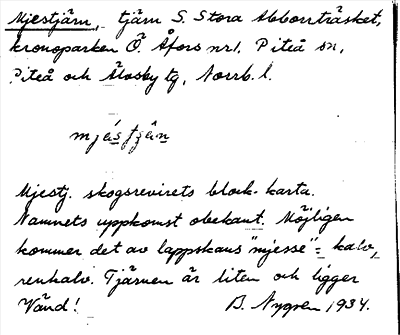 Mjestjärn, tjärn S. Stora Abborrträsket,
kronoparken Ö. Åfors nr 1, Piteå sn,
Piteå och Älvsby tg, Norrb. l.
mjȧstjän
Mjestj. skogsrevirets block-karta.
Namnets uppkomst obekant. Möjligen
kommer det av lappskans "mjesse" = kalv,
renkalv. Tjärnen är liten och ligger
Vänd! B. Nygren 1934.